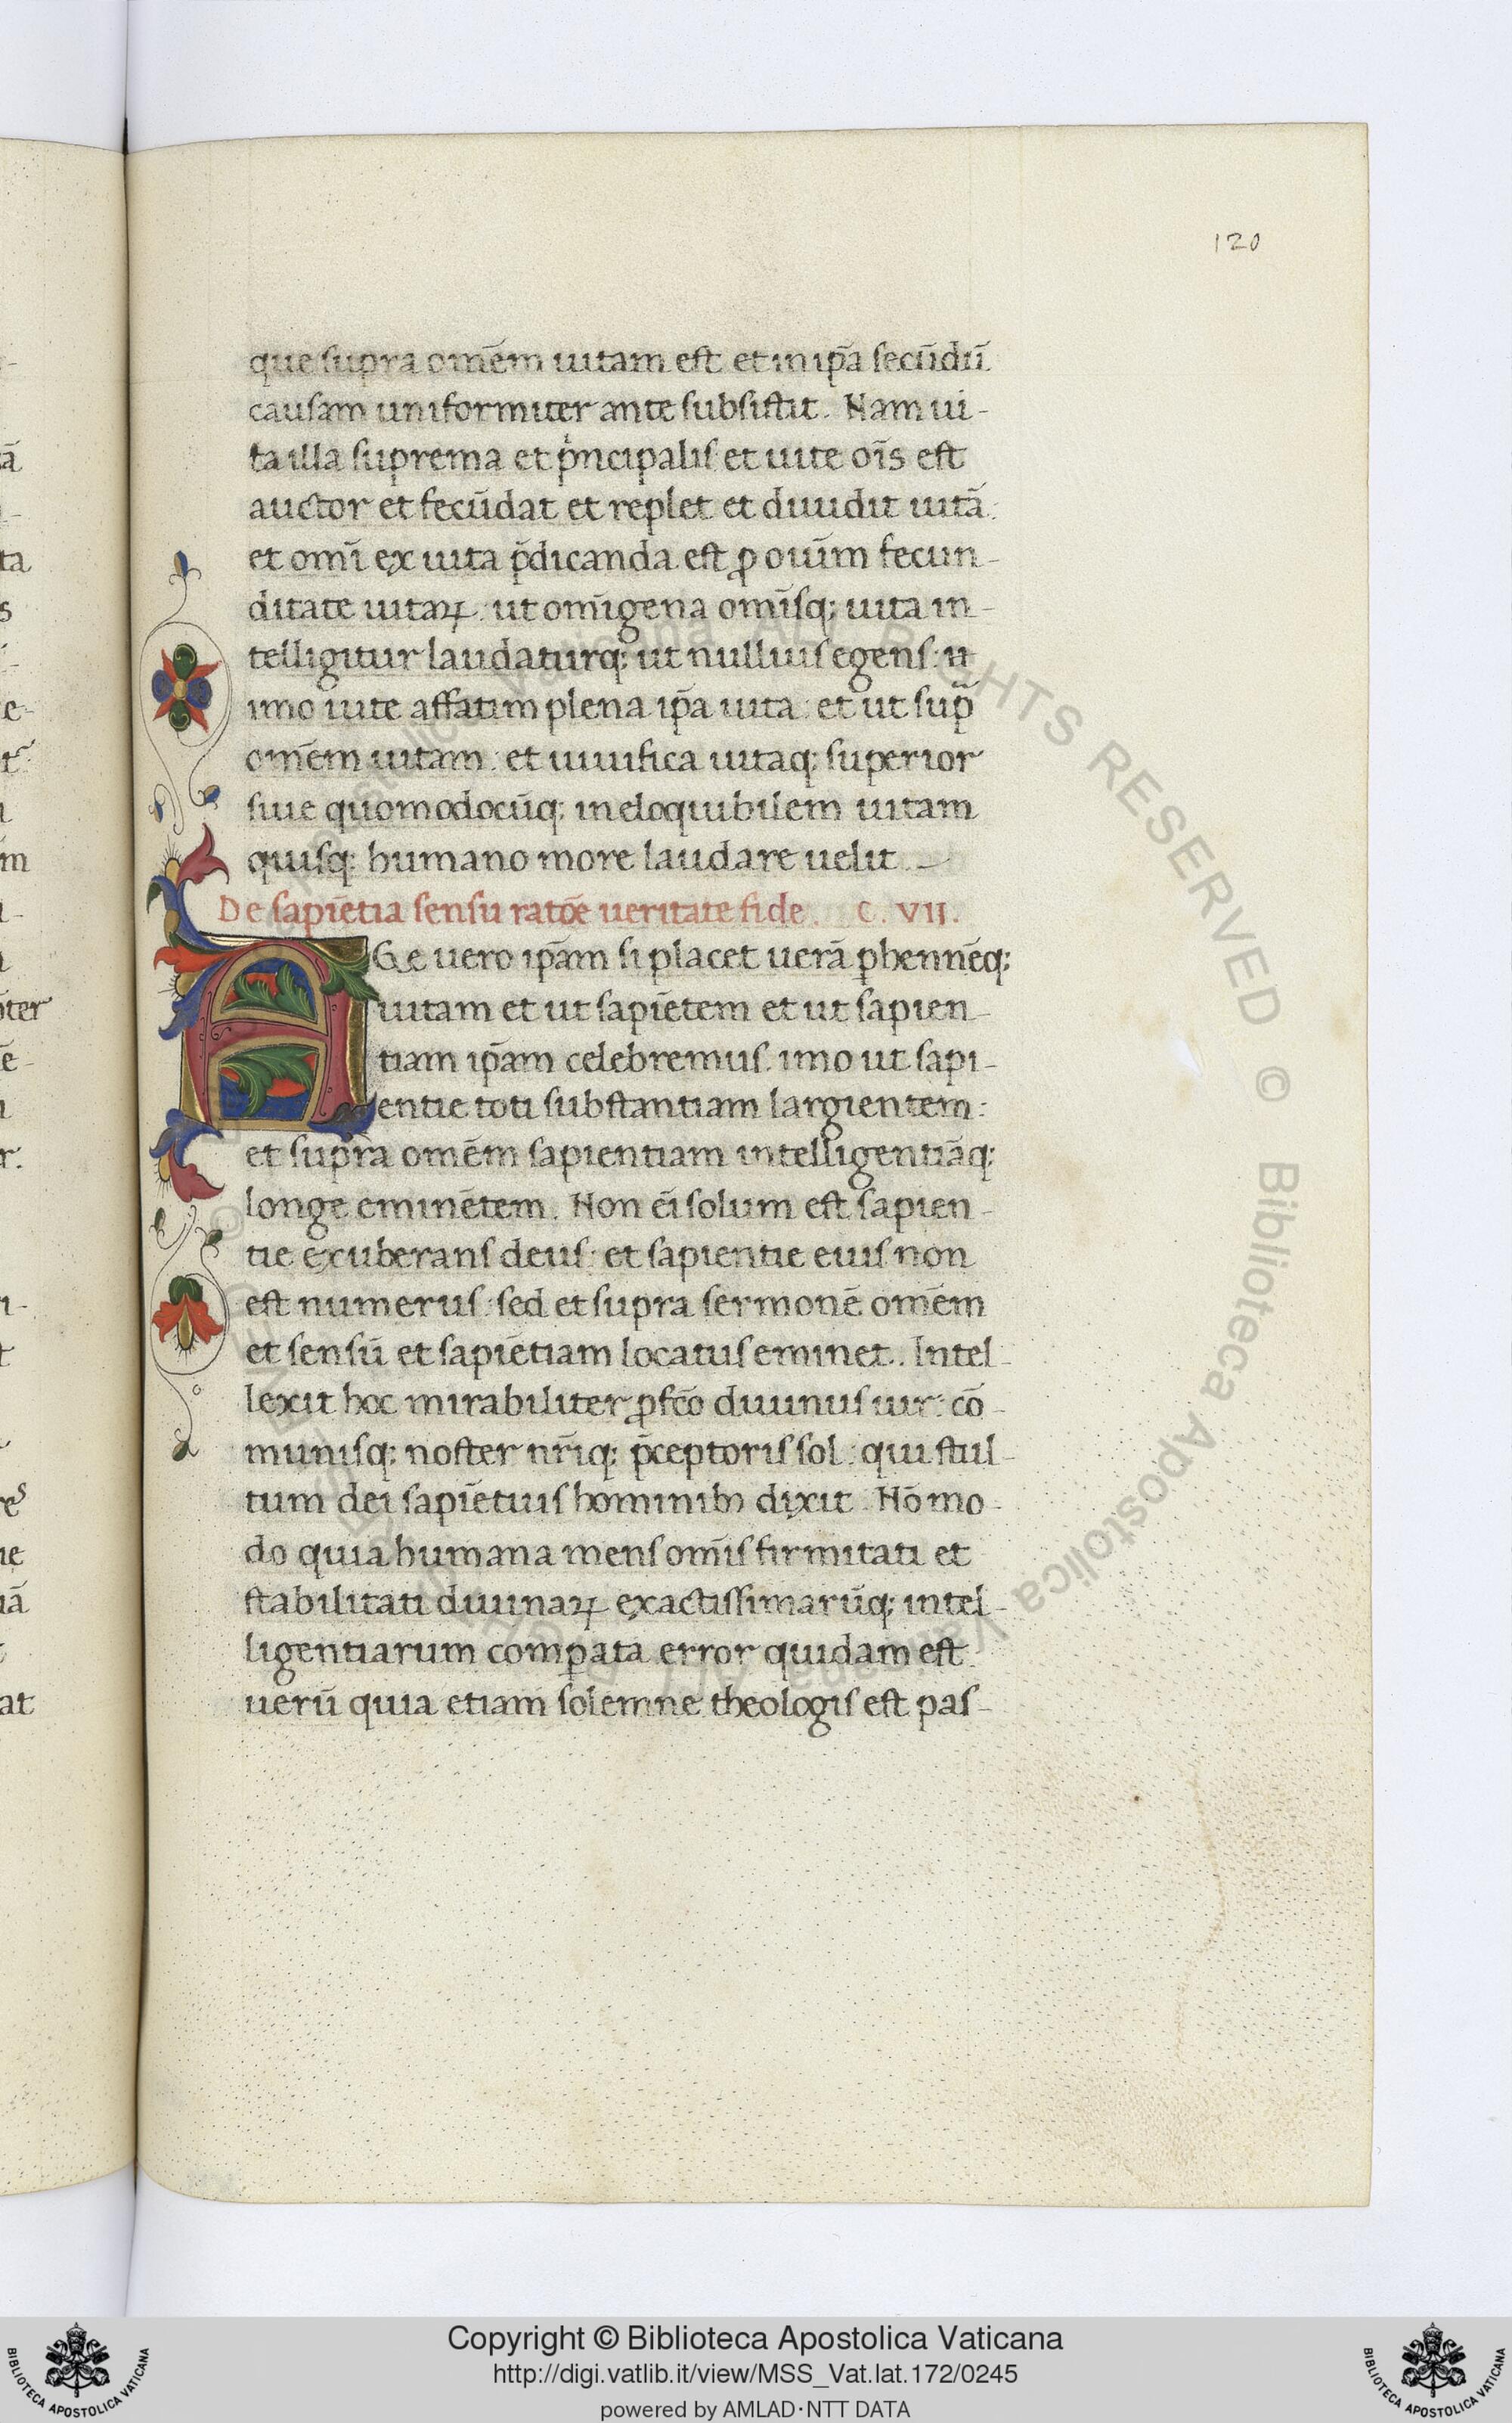 120
que supra om̄em uitam est et in ip̄a secūdū
causam uniformiter ante subsistit. Nam ui-
ta illa suprema et pͥncipalis et uite oīs est
auctor et fecūdat et replet et diuidit uitā:
et om̄i ex uita p̄dicanda est ꝓ ouīm fecun-
ditate uitaꝝ: ut om̄igena om̄isq; uita in-
telligitur laudaturq; ut nullius egens: ii
imo uite affatim plena ip̄a uita: et ut sup̄
om̄em uitam: et uiuifica uitaq; superior
siue quomodocūq; ineloquibilem uitam
quisq; humano more laudare uelit.
De sapiētia sensu ratōe ueritate fide. C. VII.
AGe uero ip̄am si placet uerā ꝑhennēq;
uitam et ut sapiētem et ut sapien-
tiam ip̄am celebremus. imo ut sapi-
entie toti substantiam largientem:
et supra om̄em sapientiam intelligentiāq;
longe eminētem. Non ei̅ solum est sapien-
tie exuberans deus: et sapientie eius non
est numerus: sed et supra sermonē om̄em
et sensū et sapiētiam locatus eminet. Intel-
lexit hoc mirabiliter ꝓfc̄o diuinus uir: cō-
munisq; noster nr̄iq; p̄ceptoris sol: qui stul-
tum dei sapiētius hominibꝫ dixit. Nō mo-
do quia humana mens om̄is firmitati et
stabilitati diuinaꝝ exactissimarūq; intel-
ligentiarum comꝑata error quidam est.
uerū quia etiam solemne theologis est pas-
Copyright © Biblioteca Apostolica Vaticana
http://digi.vatlib.it/view/MSS_Vat.lat.172/0245
powered by AMLAD·NTT DATA
BIBLIOTECA APOSTOLICA VATICANA
BIBLIOTECA APOSTOLICA VATICANA